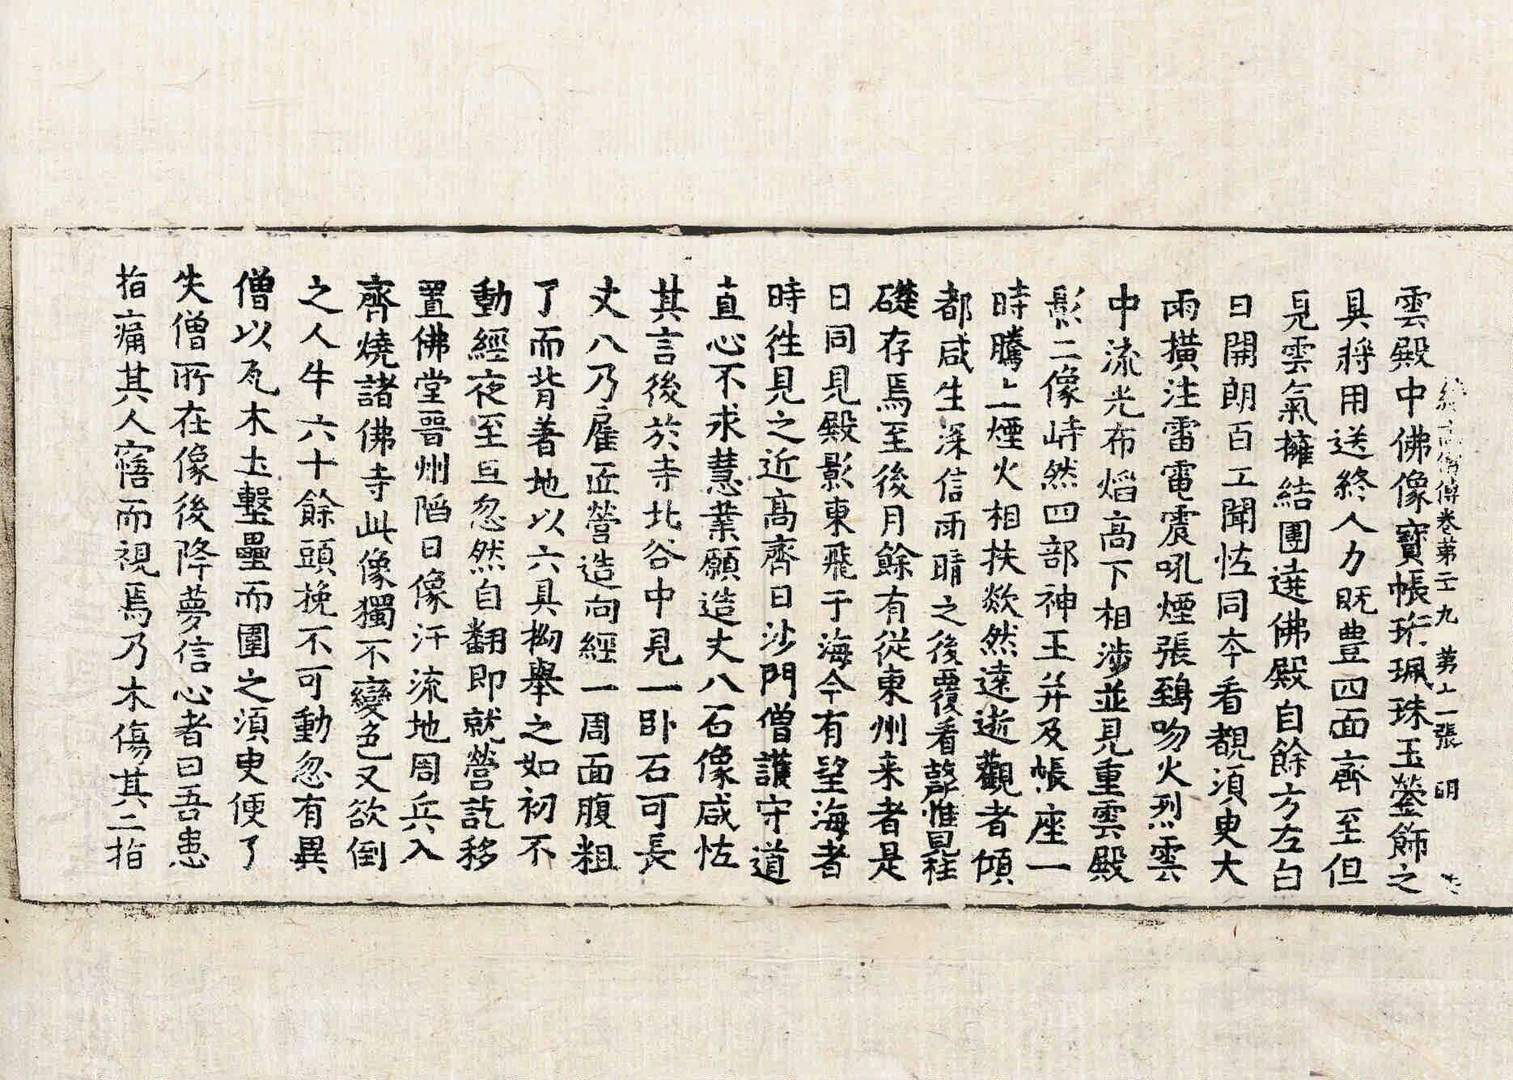 續高僧傳卷第二十九 第十一張 明
雲殿中佛像寶帳珩珮珠玉蓥飾之
具將用送終人力既豊四面齊至但
見雲氣擁結團遶佛殿自餘方左白
日開朗百工聞恠同夲看覩湏臾大
雨撗注雷電震吼煙張鵄吻火烈雲
中流光布焰高下相涉並見重雲殿
影二像峙然四部神王并及帳座一
時騰上煙火相扶歘然遠逝觀者傾
都咸生深信雨晴之後覆看故處惟見柱
礎存焉至後月餘有從東州来者是
日同見殿影東飛于海今有望海者
時徃見之近高齊日沙門僧護守道
直心不求慧業願造丈八石像咸恠
其言後於寺北谷中見一卧石可長
丈八乃雇匠營造向經一周面腹粗
了而背著地以六具拗舉之如初不
動經夜至旦忽然自翻即就營訖移
置佛堂晉州陷日像汗流地周兵入
齊燒諸佛寺此像獨不變色又欲倒
之人牛六十餘頭挽不可動忽有異
僧以瓦木土墼壘而圍之湏臾便了
失僧所在像後降夢信心者曰吾患
指痛其人寤而視焉乃木傷其二指